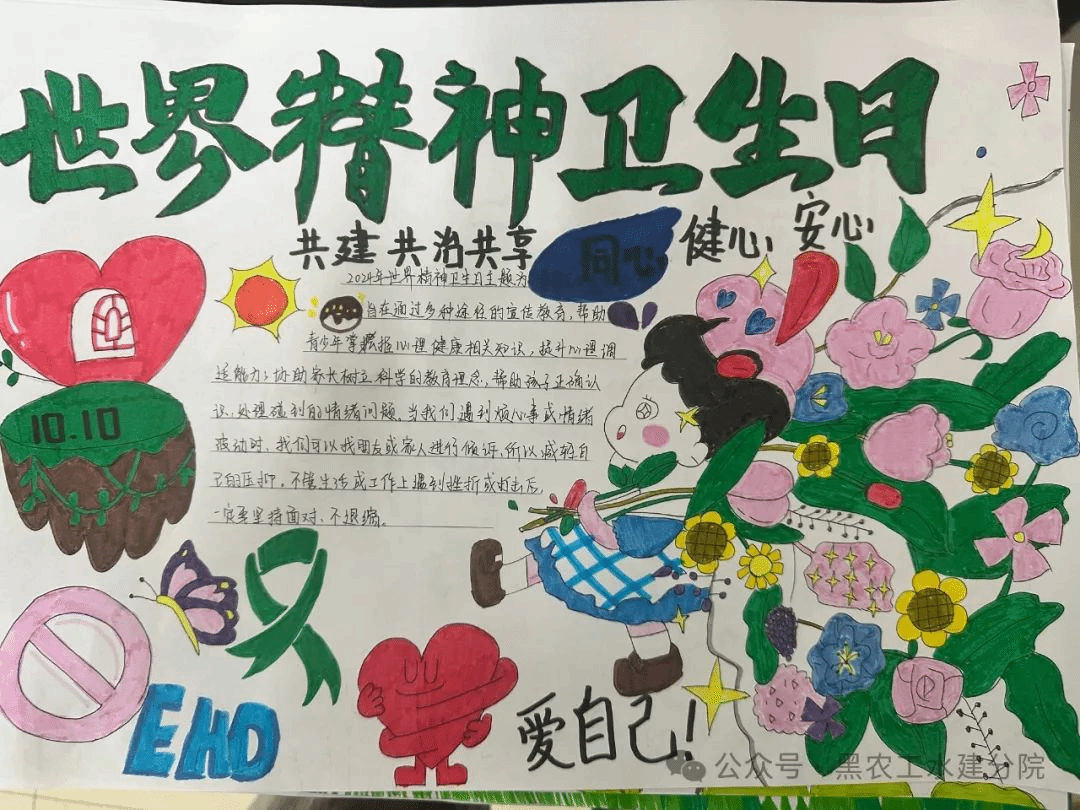 世界精神卫生日
共建 共治共享 同心 健心 安心
2024年世界精神卫生日主题为
旨在通过多种途径的宣传教育,帮助
青少年掌握心理健康相关知识,提升心理调
适能力;协助家长树立科学的教育理念,帮助孩子正确认
识、处理碰到的情绪问题。当我们遇到烦心事或情绪
波动时,我们可以找朋友或家人进行倾诉,所以减轻自
己的压抑,不管生活或工作上遇到挫折或打击后,
一定要坚持面对、不退缩。
10.10
END
爱自己!
公众号 黑农工水建分院